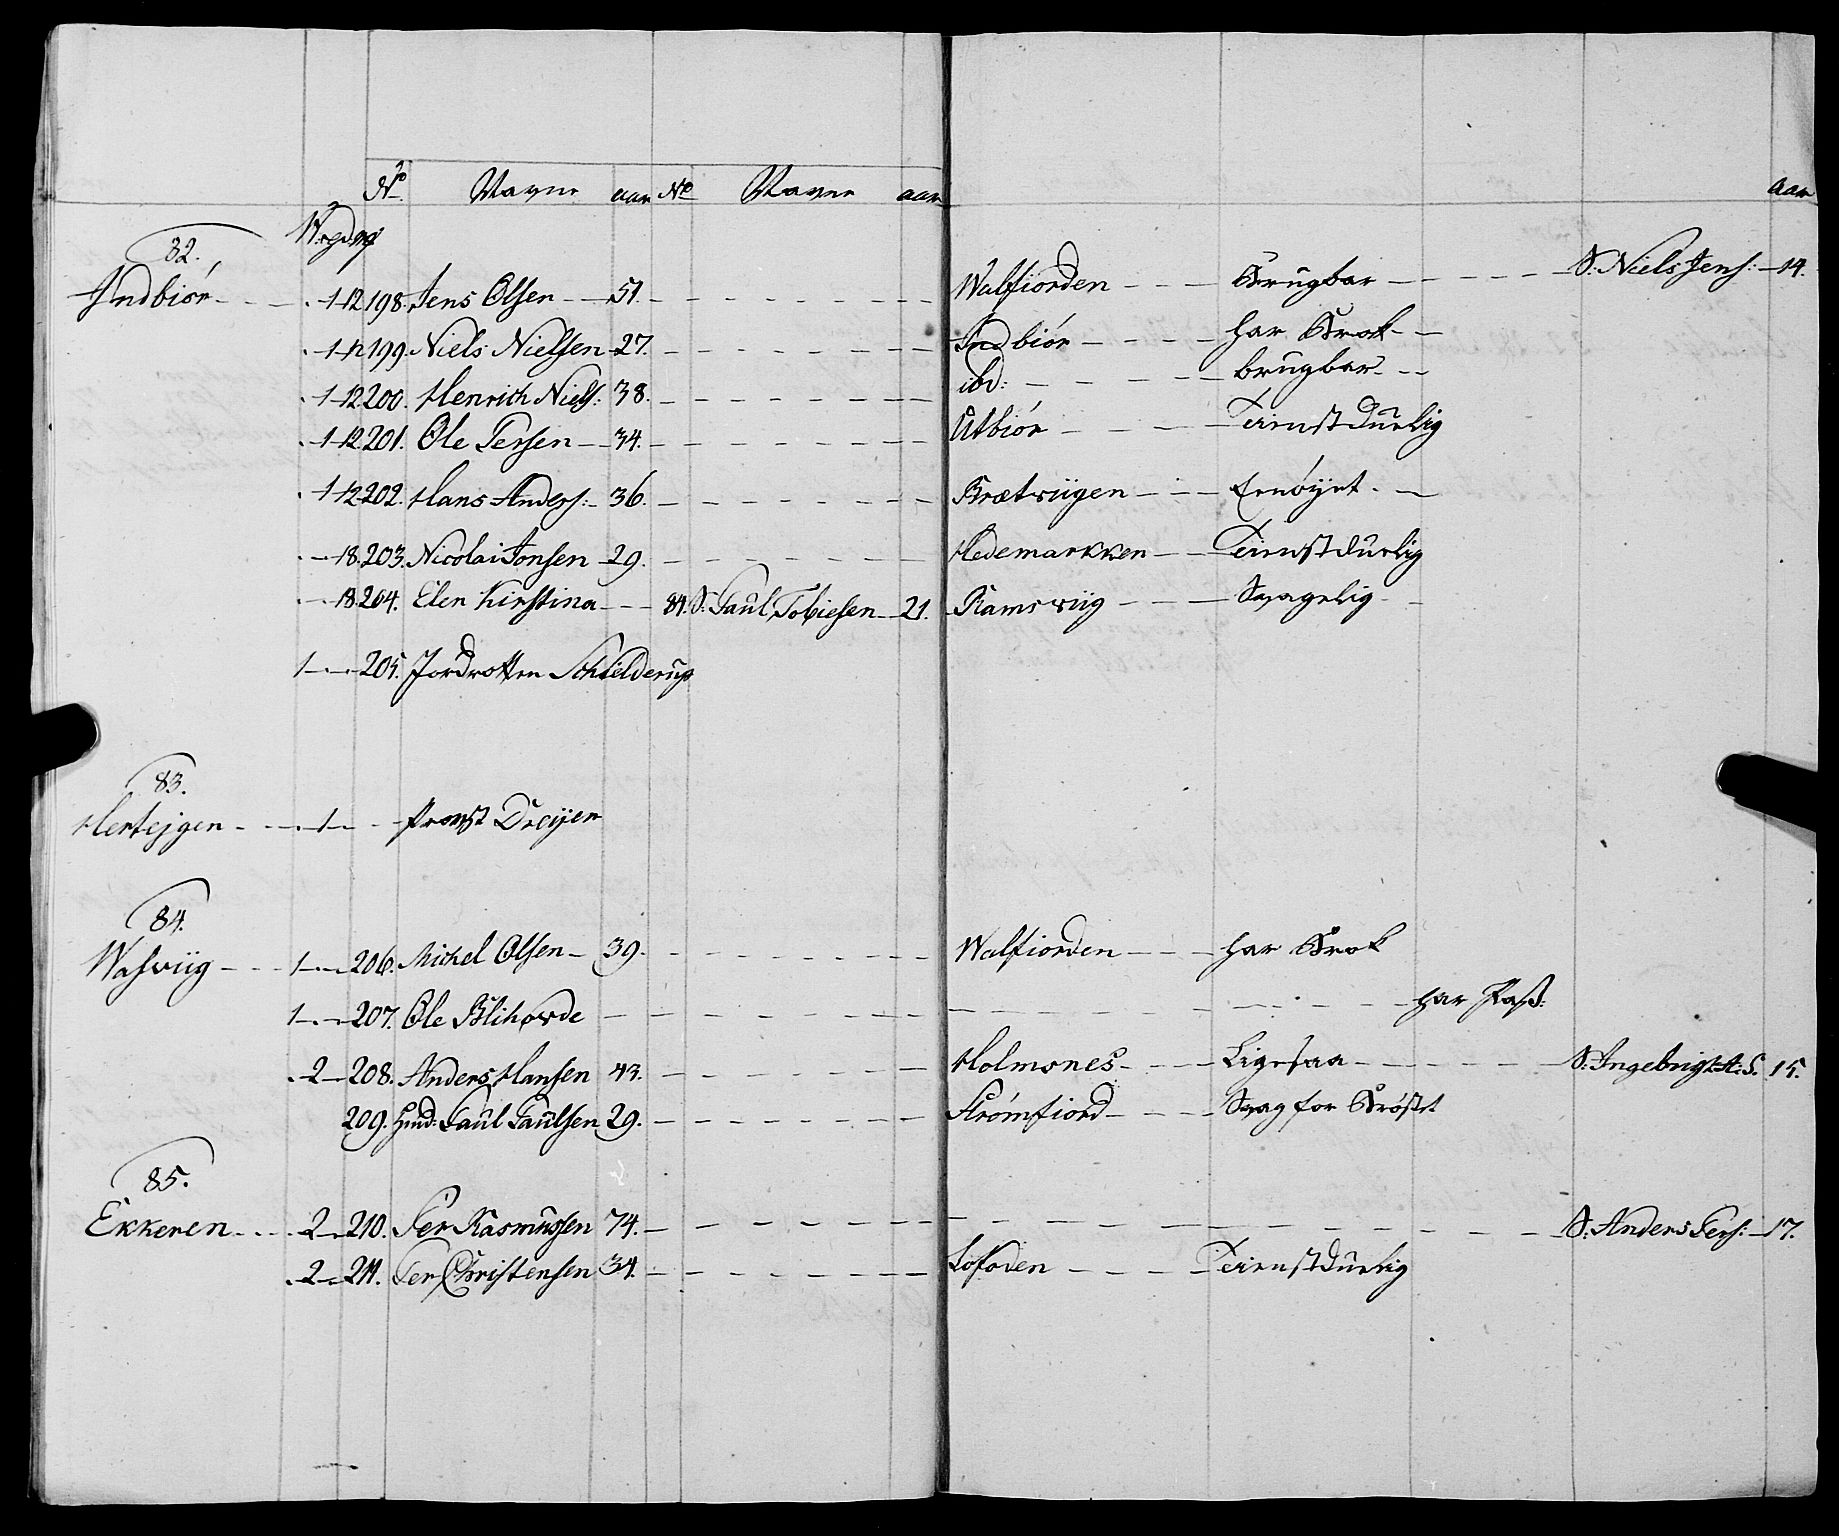 No Navne aar No Navne aar aar
W pd mg
82.
Indbiör - - - 1 12 198. Jens Olsen - 51 - - - Walfiorden - - - Brugbar - - - S: Niels Jens: - 14.
- 1 - 12 199. Niels Nielsen - 27. - - - Indbiör - - - har Brok - -
- 1 - 12 200. Henrich Niels: 38. - - - ibd: - - - brugbar - -
- 1 - 12 201. Ole Persen - 34. - - - Utbiör - - - Tienstdüelig
- 1 - 12 202. Hans Anders: - 36. - - - Brætviigen - - - fornöyet - -
- - 18. 203. Nicolai Jonsen - 29. - - - Hedemarkken - - Tienstdüelig
- - 18. 204. Elen Kirstina - - - 84. S: Paül Tobiesen - 21. Ramsviig - - - Svagelig - -
1 - - 205. Jordrotten Schielderup
83.
Hertejgen - - - 1 - - Provst Dreijer
84.
Wasviig - - - 1 - - 206. Michel Olsen - 39. - - - Walfiorden - - - har Brok
1 - - 207. Ole Blihovde - - - har Pass:
- 2 - 208. Anders Hansen 43. - - - Holmsnes - - - Ligesaa - - - S: Ingebrigt A: S. 15.
209. hmd: Paül Paülsen 29. - - - Strömfiord - - - Svag for Bröstet
85.
Ekkeren - - - 2 - 210. Per Rasmüssen 74. - - - S: Anders Pers: - 17.
- 2 - 211. Per Christensen 34. - - - Lofoden - - - Tienstdüelig